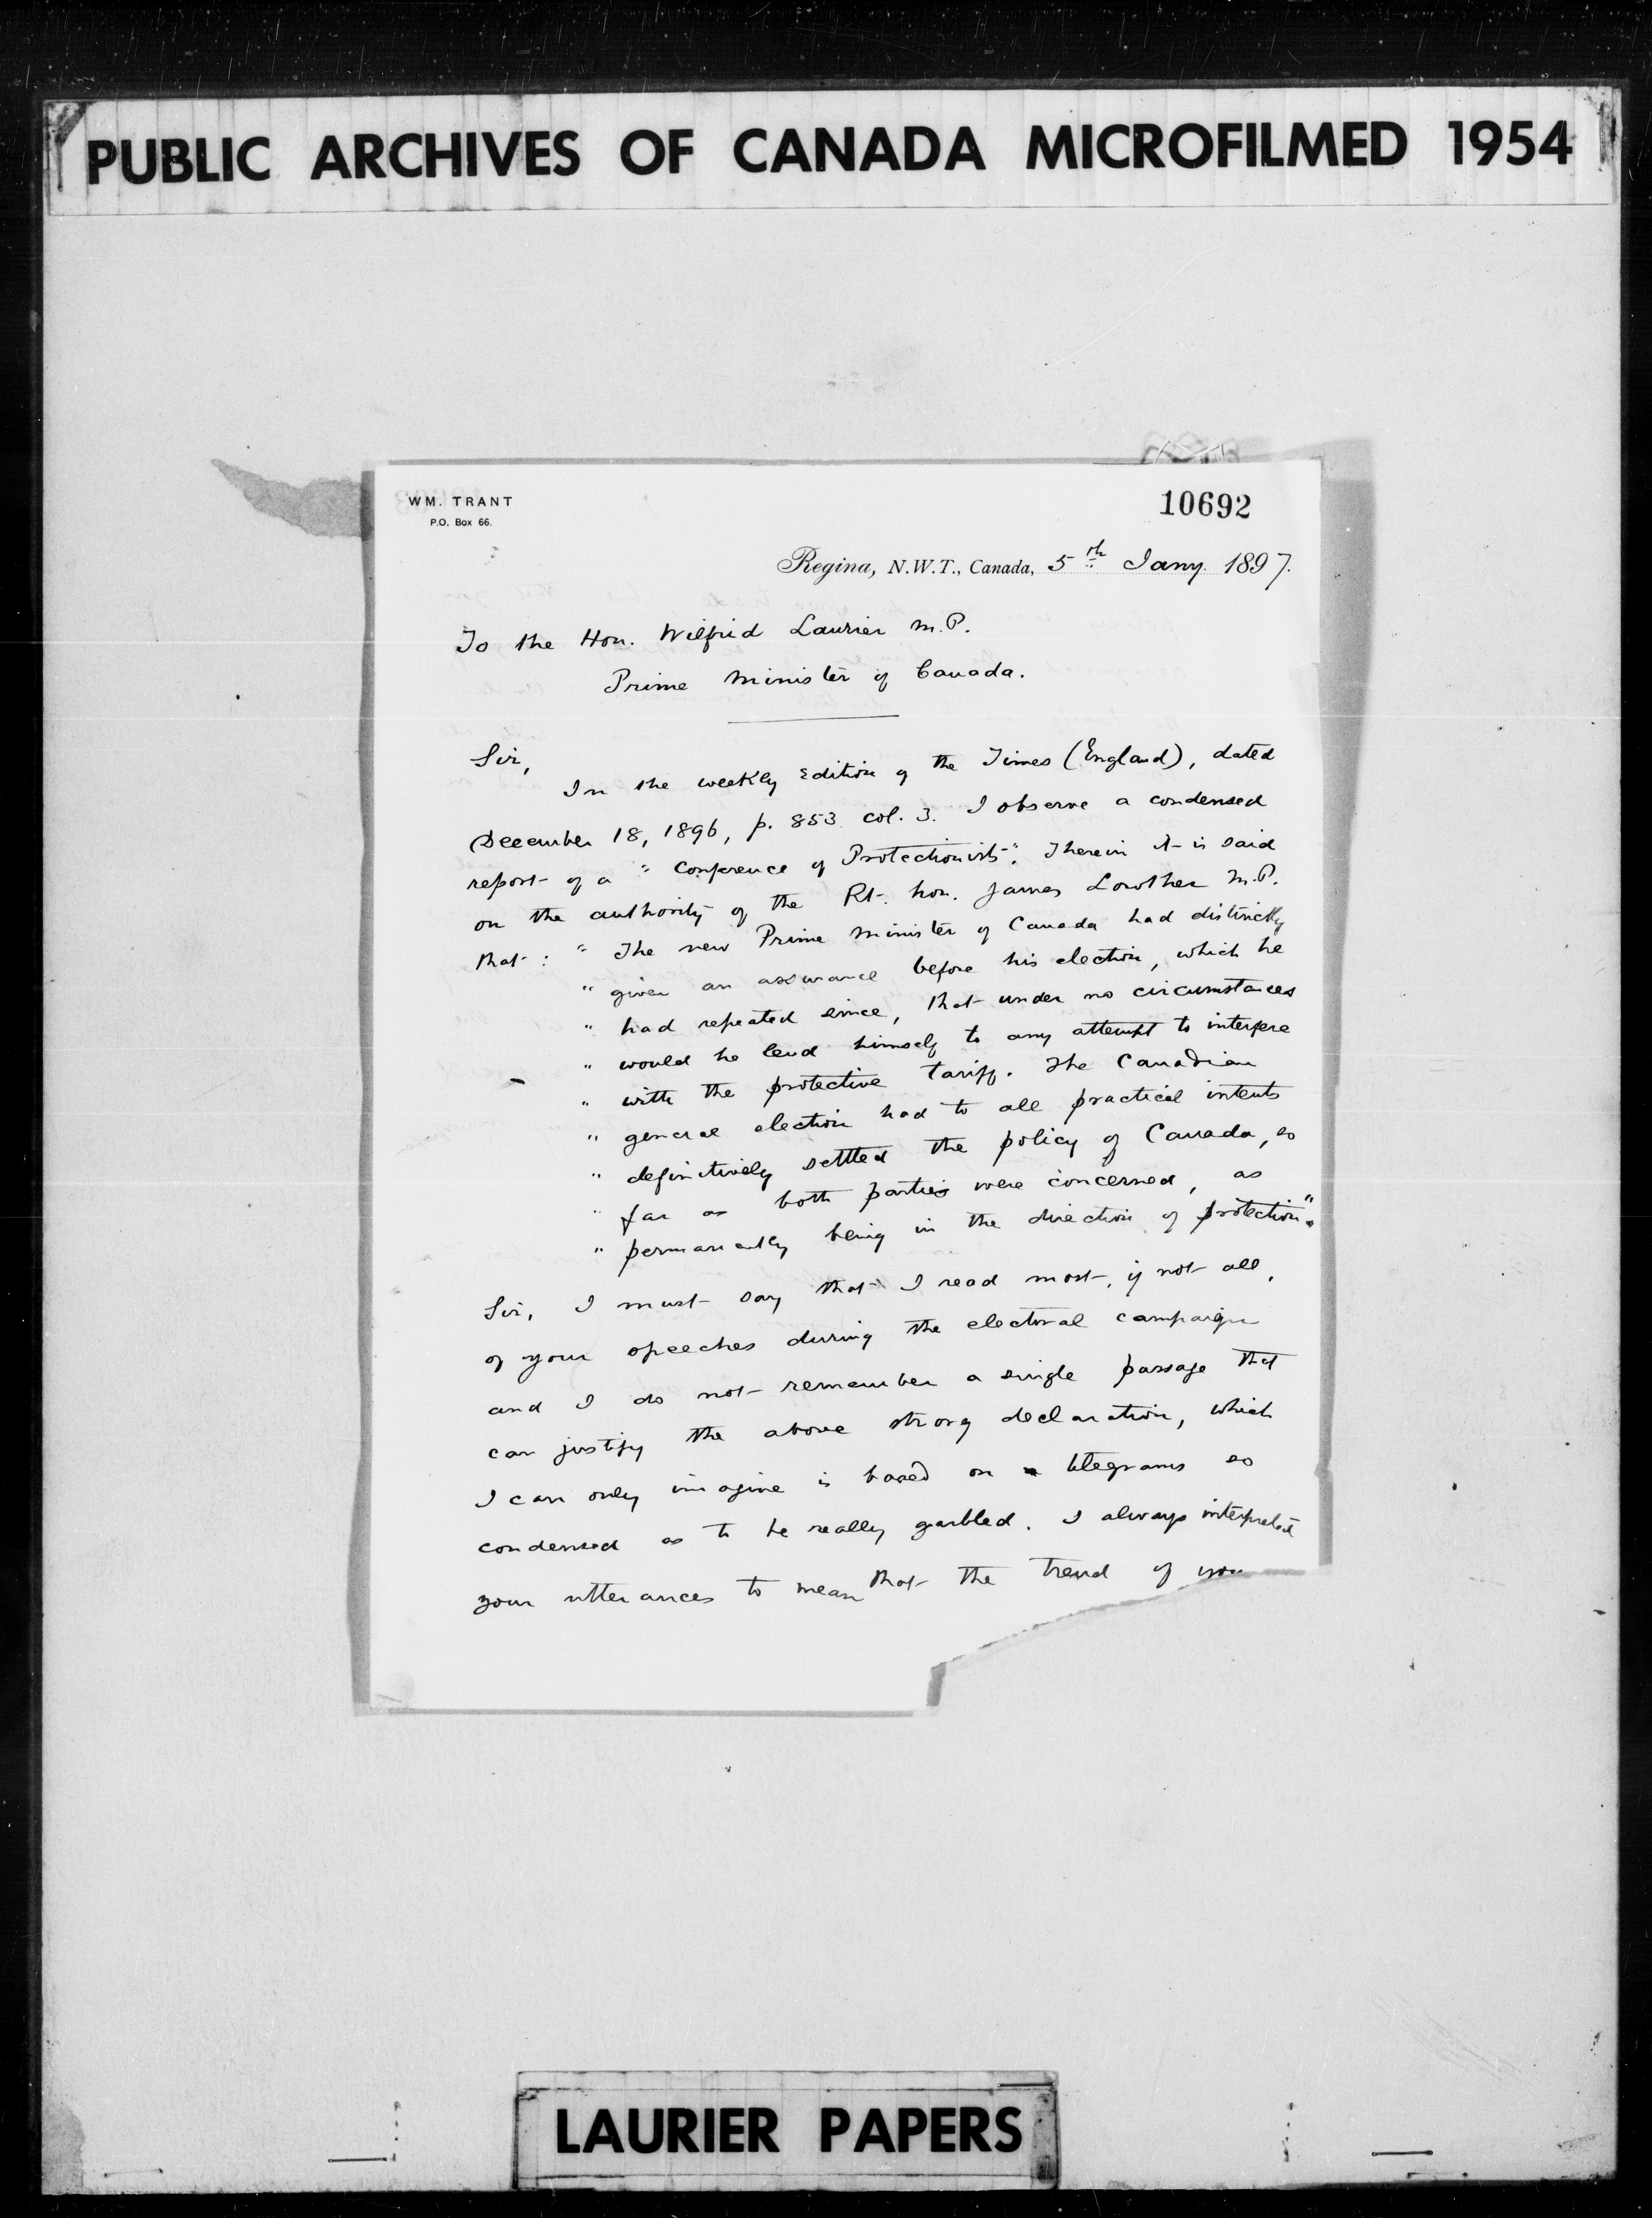 PUBLIC ARCHIVES OF CANADA MICROFILMED 1954
WM. TRANT
P.O. Box 66.
10692
Regina, N.W.T., Canada, 5th Jany. 1897.
To the Hon. Wilfrid Laurier M.P.
Prime Minister of Canada.
Sir,
In the weekly Edition of the Times (England), dated
December 18, 1896, p. 853 col. 3. I observe a condensed
report of a "Conference of Protectionists". Therein it is said
on the authority of the Rt. hon. James Lowther M.P.
that: "The new Prime Minister of Canada had distinctly
" given an assurance before his election, which he
" had repeated since, that under no circumstances
" would he lend himself to any attempt to interfere
" with the protective tariff. The Canadian
" general election had to all practical intents
" definitively settled the policy of Canada, so
" far as both parties were concerned, as
" permanently being in the direction of protection".
Sir, I must say that I read most, if not all,
of your speeches during the electoral campaign
and I do not remember a single passage that
can justify the above strong declaration, which
I can only imagine is based on telegrams so
condensed as to be really garbled. I always interpreted
your utterances to mean that the trend of
LAURIER PAPERS